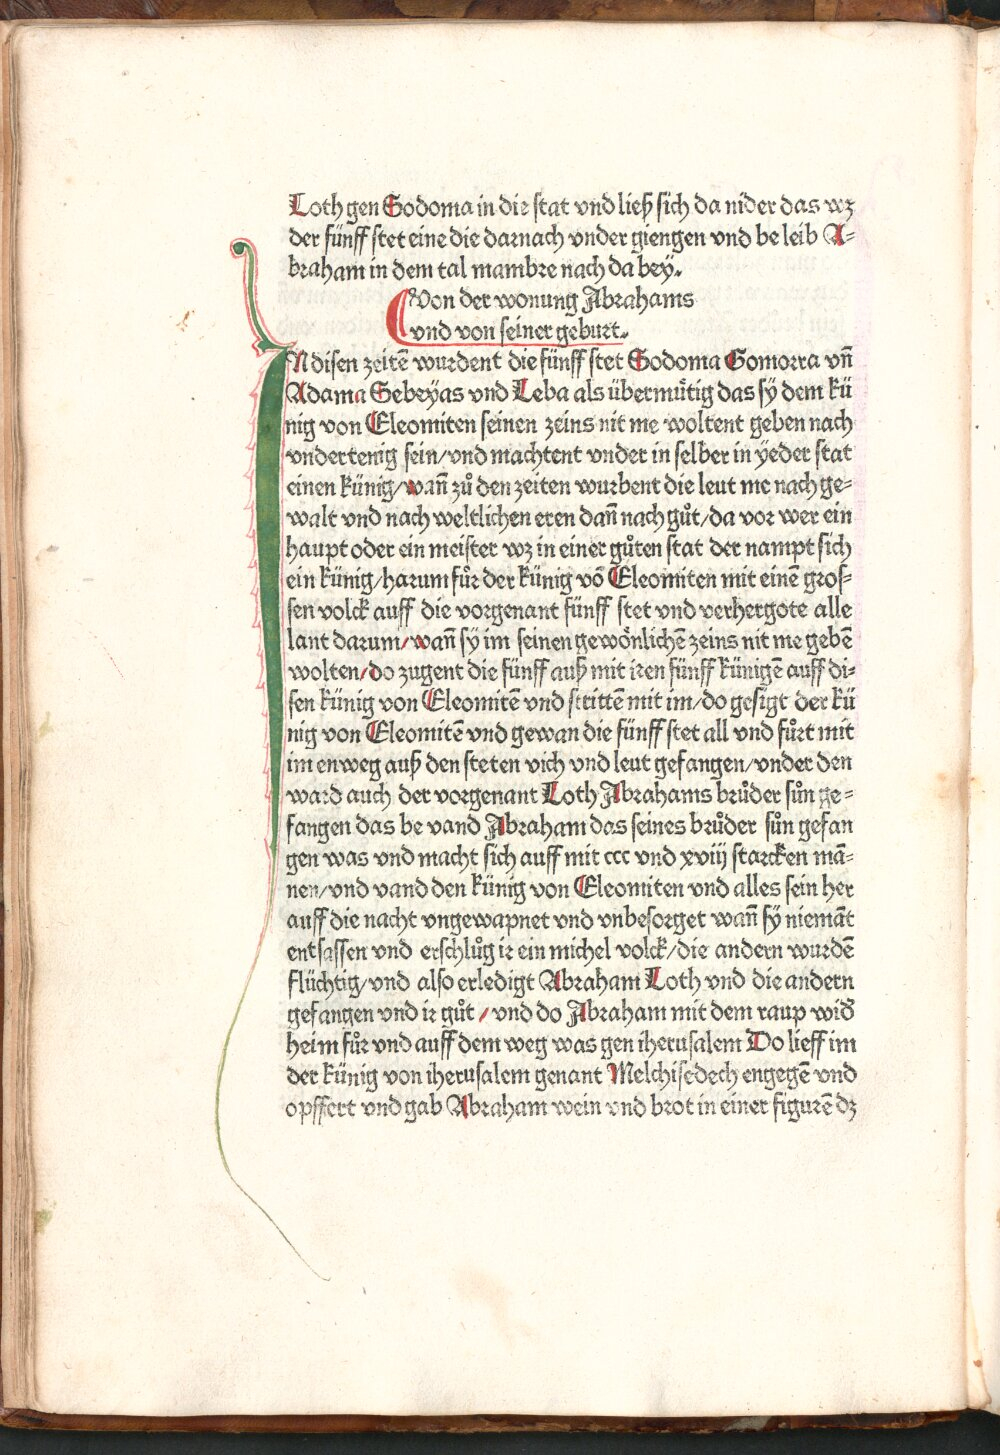 Loth gen Sodoma in die stat vnd ließ sich da nider das wz
der fünff stet eine die darnach vnder giengen vnd be leib A-
braham in dem tal mambre nach da bey.
Von der wonung Abrahams
vnd von seiner geburt.
IN disen zeitē wurdent die fünff stet Sodoma Gomorra vn̄
Adama Sebeyas vnd Leba als übermuͤtig das sÿ dem kü
nig von Eleomiten seinen zeins nit me woltent geben nach
vndertenig sein/vnd machtent vnder in selber in ÿeder stat
einen künig/wan̄ zuͦ den zeiten wurbent die leut me nach ge-
walt vnd nach weltlichen eren dan̄ nach guͦt/da vor wer ein
haupt oder ein meister wz in einer guͦten stat der nampt sich
ein künig/harum fuͦr der künig vō Eleomiten mit einē gros-
sen volck auff die vorgenant fünff stet vnd verhergote alle
lant darum/wan̄ sÿ im seinen gewoͤnlichē zeins nit me gebē
wolten/do zugent die fünff auß mit iren fünff künigē auff di-
sen künig von Eleomitē vnd strittē mit im/do gesigt der kü
nig von Eleomitē vnd gewan die fünff stet all vnd fuͦrt mit
im enweg auß den steten vich vnd leut gefangen/vnder den
ward auch der vorgenant Loth Abrahams bruͦder suͦn ge-
fangen das be vand Abraham das seines bruͦder suͦn gefan
gen was vnd macht sich auff mit ccc vnd xviij starcken mā-
nen/vnd vand den künig von Eleomiten vnd alles sein her
auff die nacht vngewapnet vnd vnbesorget wan̄ sÿ niemāt
entsassen vnd erschluͦg ir ein michel volck/die andern wurdē
flüchtig/vnd also erledigt Abraham Loth vnd die andern
gefangen vnd ir guͦt/vnd do Abraham mit dem raup wid̄
heim fuͦr vnd auff dem weg was gen iherusalem Do lieff im
der künig von iherusalem genant Melchisedech engegē vnd
opffert vnd gab Abraham wein vnd brot in einer figurē dz